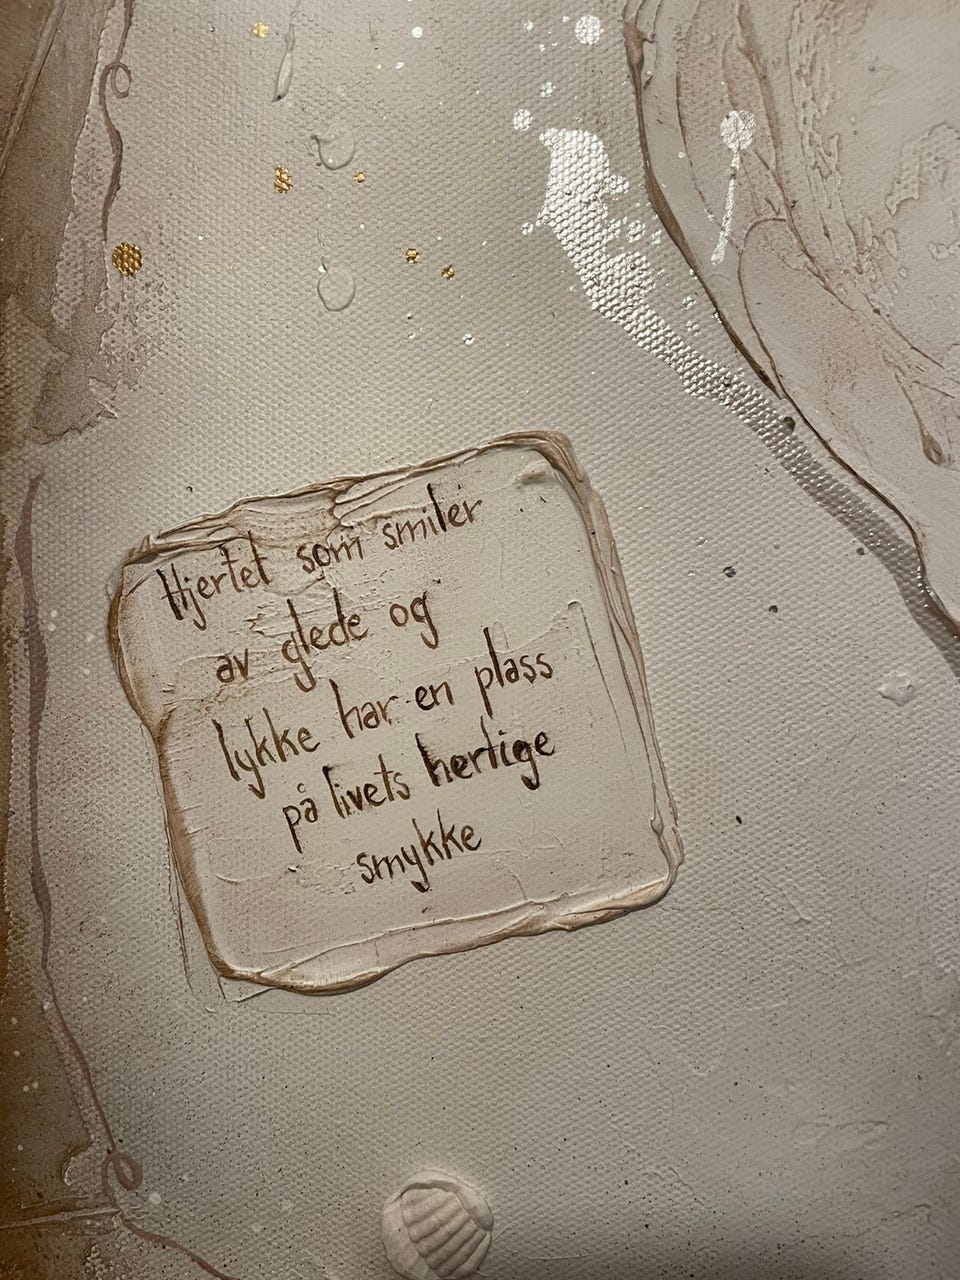 Hjertet som smiler
av glede og
lykke har en plass
på livets hertige
smykke